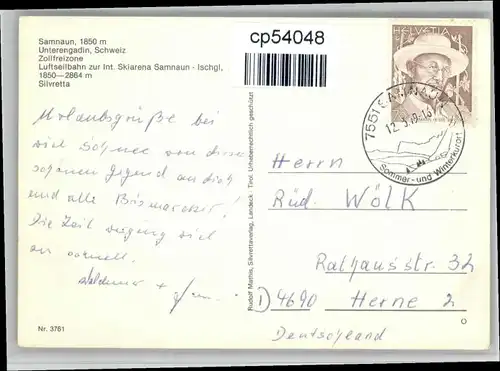 Samnaun, 1850 m
Unterengadin, Schweiz
Zollfreizone
Luftseilbahn zur Int. Skiarena Samnaun - Ischgl,
1850—2864 m
Silvretta
cp54048
HELVETIA
7551 SAMNAUN
12.3.79-18
Sommer- und Winterkurort
Urlaubsgrüße bei
viel Schnee von dieser
schönen Gegend an dich
und alle Bismarcker!
Die Zeit verging viel
zu schnell.
Waldemar +
Rudolf Mathis, Silvrettaverlag, Landeck - Tirol. Urheberrechtlich geschützt
Herrn
Rüd. Wölk
Rathausstr. 32
D 4690 Herne 2
Deutschland
Nr. 3761